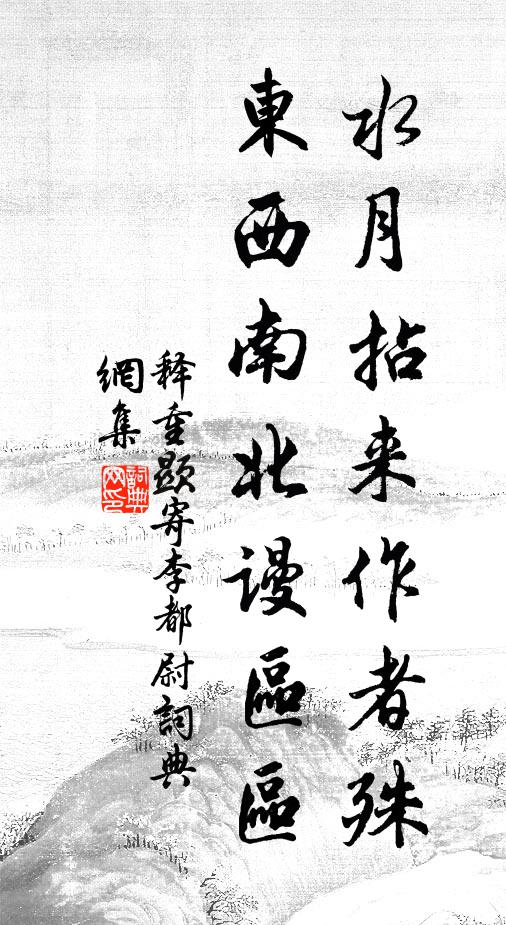 水月拈来作者殊
東西南北謾區區
释重顯寄李都尉詞典
網集
詞典
网印